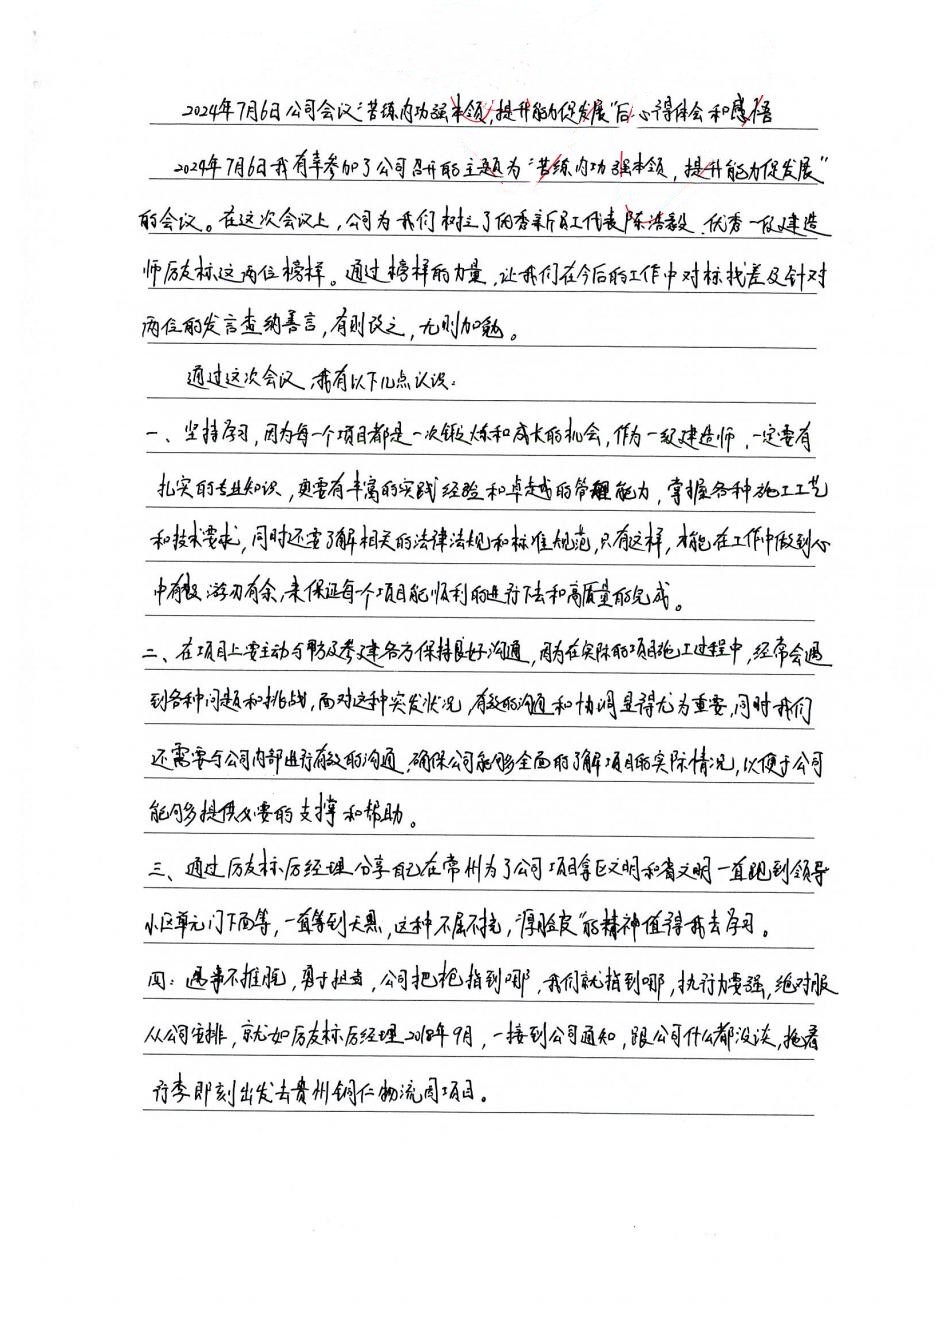 2024年7月6日公司会议“苦练内功强本领,提升能力促发展”后心得体会和感悟
2024年7月6日我有幸参加了公司召开的主题为“苦练内功强本领,提升能力促发展”
的会议。在这次会议上,公司为我们树立了优秀新员工代表陈浩毅、优秀一级建造
师厉友标这两位榜样。通过榜样的力量,让我们在今后的工作中对标找差及针对
两位的发言查纳善言,有则改之,无则加勉。
通过这次会议,我有以下几点认识:
一、坚持学习,因为每一个项目都是一次锻炼和成长的机会,作为一级建造师,一定要有
扎实的专业知识,更要有丰富的实践经验和卓越的管理能力,掌握各种施工工艺
和技术要求,同时还要了解相关的法律法规和标准规范,只有这样,才能在工作中做到心
中有数、游刃有余,来保证每个项目能顺利的进行下去和高质量的完成。
二、在项目上要主动与甲方及参建各方保持良好沟通,因为在实际的项目施工过程中,经常会遇
到各种问题和挑战,面对这种突发状况,有效的沟通和协调显得尤为重要,同时我们
还需要与公司内部进行有效的沟通,确保公司能够全面的了解项目的实际情况,以便于公司
能够多提供必要的支撑和帮助。
三、通过厉友标厉经理分享自己在常州为了公司项目拿区文明和省文明一直跑到领导
小区单元门下面等,一直等到天黑,这种不屈不挠,“厚脸皮”的精神值得我去学习。
四:遇事不推脱,勇于担当,公司把枪指到哪,我们就指到哪,执行力要强,绝对服
从公司安排,就如厉友标厉经理2018年9月,一接到公司通知,跟公司什么都没谈,拖着
行李即刻出发去贵州铜仁物流园项目。